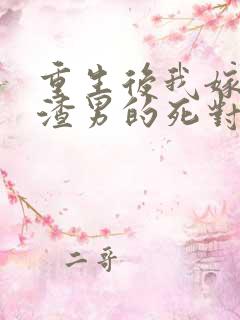 重生後我嫁
渣男的死對
二哥